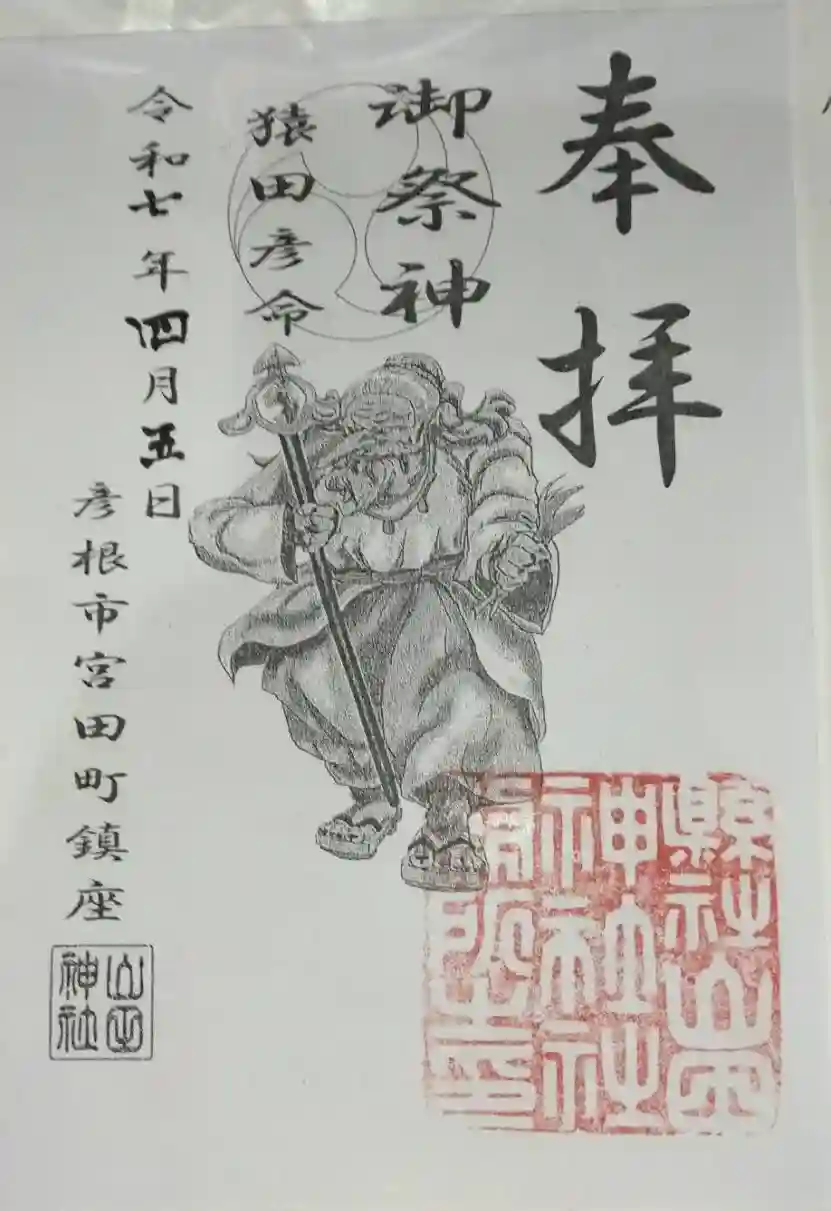 奉拝
御祭神
猿田彦命
令和七年四月五日
彦根市宮田町鎮座
山田神社
縣社山田
神社